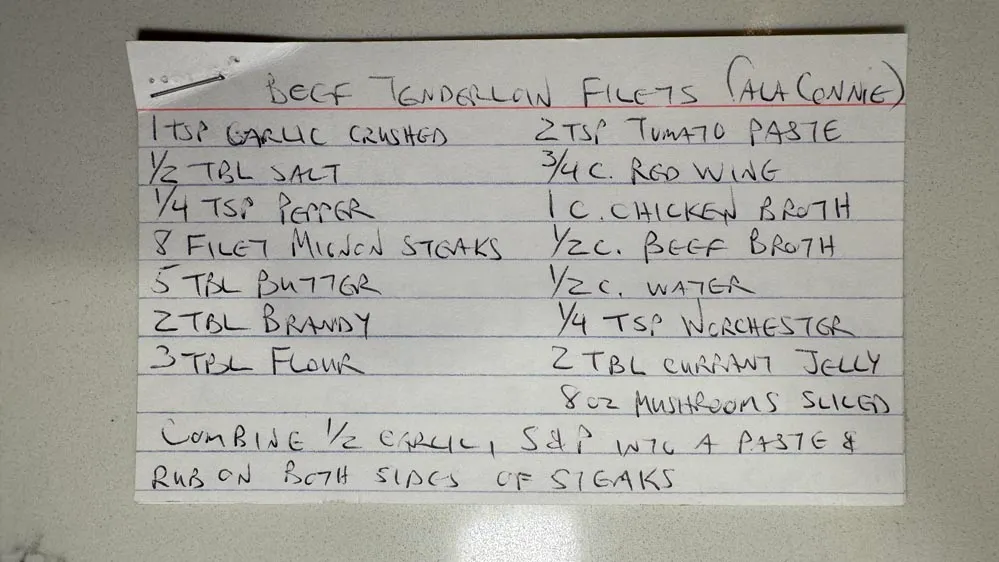 BEEF TENDERLOIN FILETS (ALA CONNIE)
1 TSP GARLIC CRUSHED
1/2 TBL SALT
1/4 TSP PEPPER
8 FILET MIGNON STEAKS
5 TBL BUTTER
2 TBL BRANDY
3 TBL FLOUR
2 TSP TOMATO PASTE
3/4 C. RED WINE
1 C. CHICKEN BROTH
1/2 C. BEEF BROTH
1/2 C. WATER
1/4 TSP WORCHESTER
2 TBL CURRANT JELLY
8 OZ MUSHROOMS SLICED
COMBINE 1/2 GARLIC, S&P INTO A PASTE &
RUB ON BOTH SIDES OF STEAKS